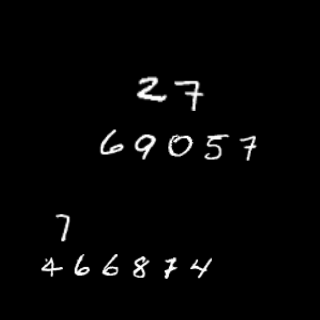 27
69057
7
466874